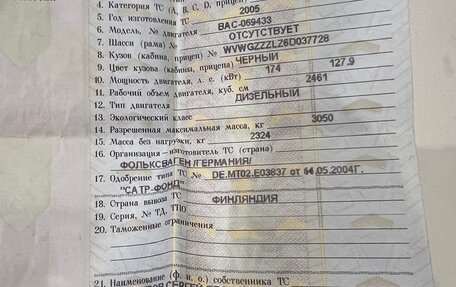 4. Категория ТС (A, B, C, D, прицеп)
5. Год изготовления ТС 2005
6. Модель, № двигателя BAC-069433
7. Шасси (рама) № ОТСУТСТВУЕТ
8. Кузов (кабина, прицеп) № WVWGZZZLZ6D037728
9. Цвет кузова (кабины, прицепа) ЧЕРНЫЙ
10. Мощность двигателя, л. с. (кВт) 174 127.9
11. Рабочий объем двигателя, куб. см 2461
12. Тип двигателя ДИЗЕЛЬНЫЙ
13. Экологический класс
14. Разрешенная максимальная масса, кг 3050
15. Масса без нагрузки, кг 2324
16. Организация—изготовитель ТС (страна)
ФОЛЬКСВАГЕН /ГЕРМАНИЯ/
17. Одобрение типа ТС № DE.MT02.E03637 от 14.05.2004Г.
"САТР-ФОНД"
18. Страна вывоза ТС ФИНЛЯНДИЯ
19. Серия, № ТД, ТПО
20. Таможенные ограничения
21. Наименование (ф. и. о.) собственника ТС
СЕРГЕЙ